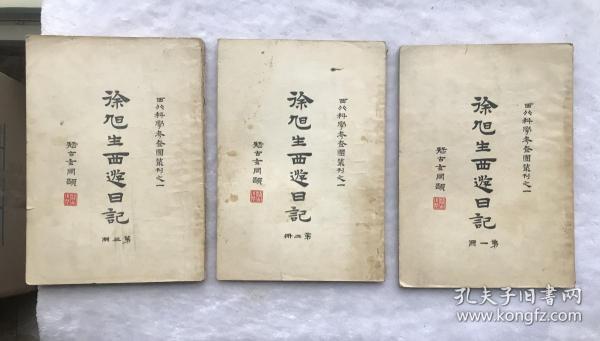 西北科學考查團叢刊之一
徐旭生西遊日記
第三冊
疑古玄同題
西北科學考查團叢刊之一
徐旭生西遊日記
第二冊
疑古玄同題
西北科學考查團叢刊之一
徐旭生西遊日記
第一冊
疑古玄同題
孔夫子旧书网
www.kongfz.com